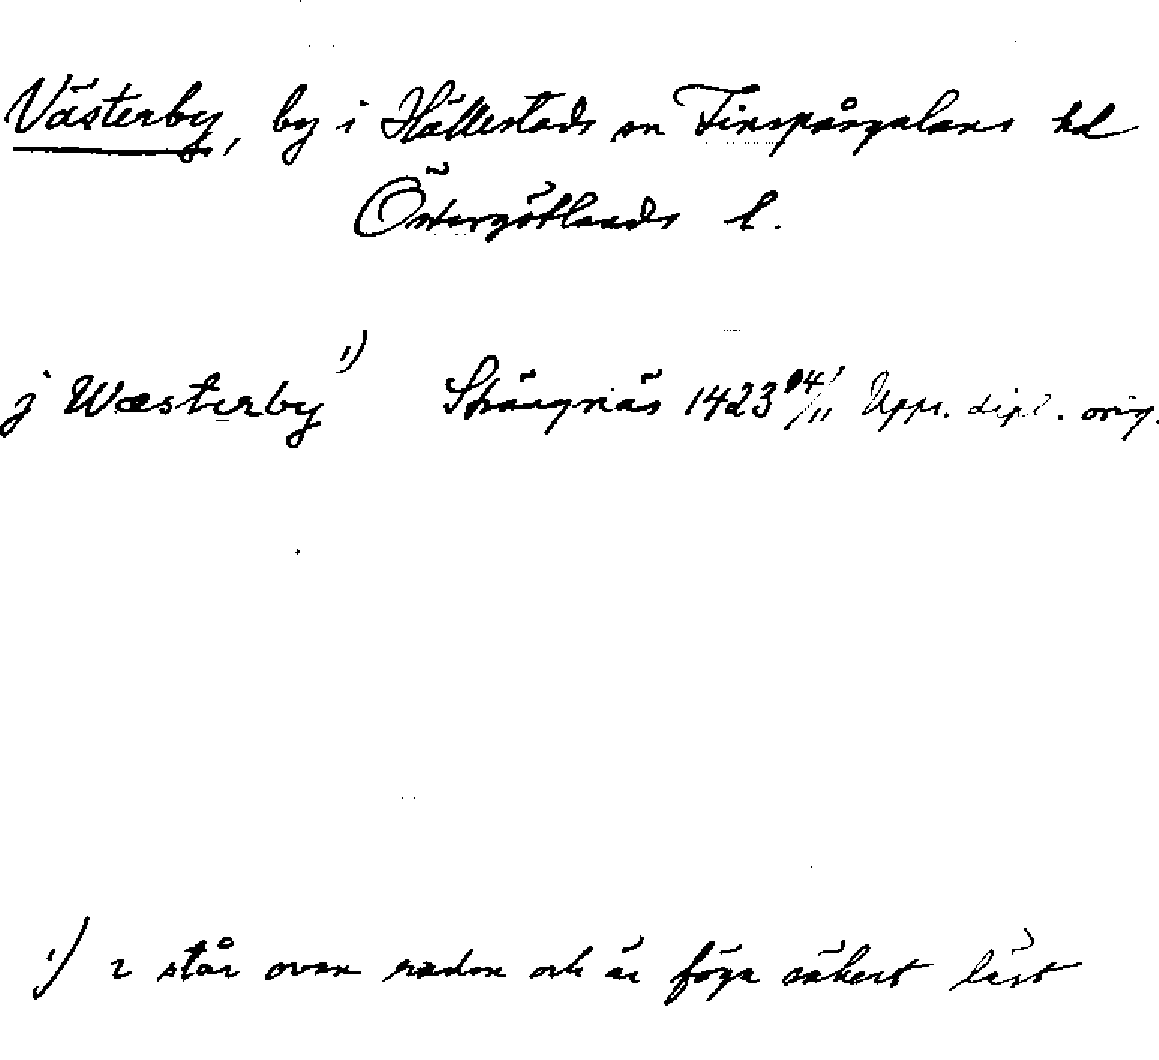 Västerby, by i Hällestads sn Finspångalans hd
Östergötlands l.
j Wæsterby 1) Strängnäs 1423 4/11 Upps. dipl. orig.
1) r står ovan raden och är föga säkert läst